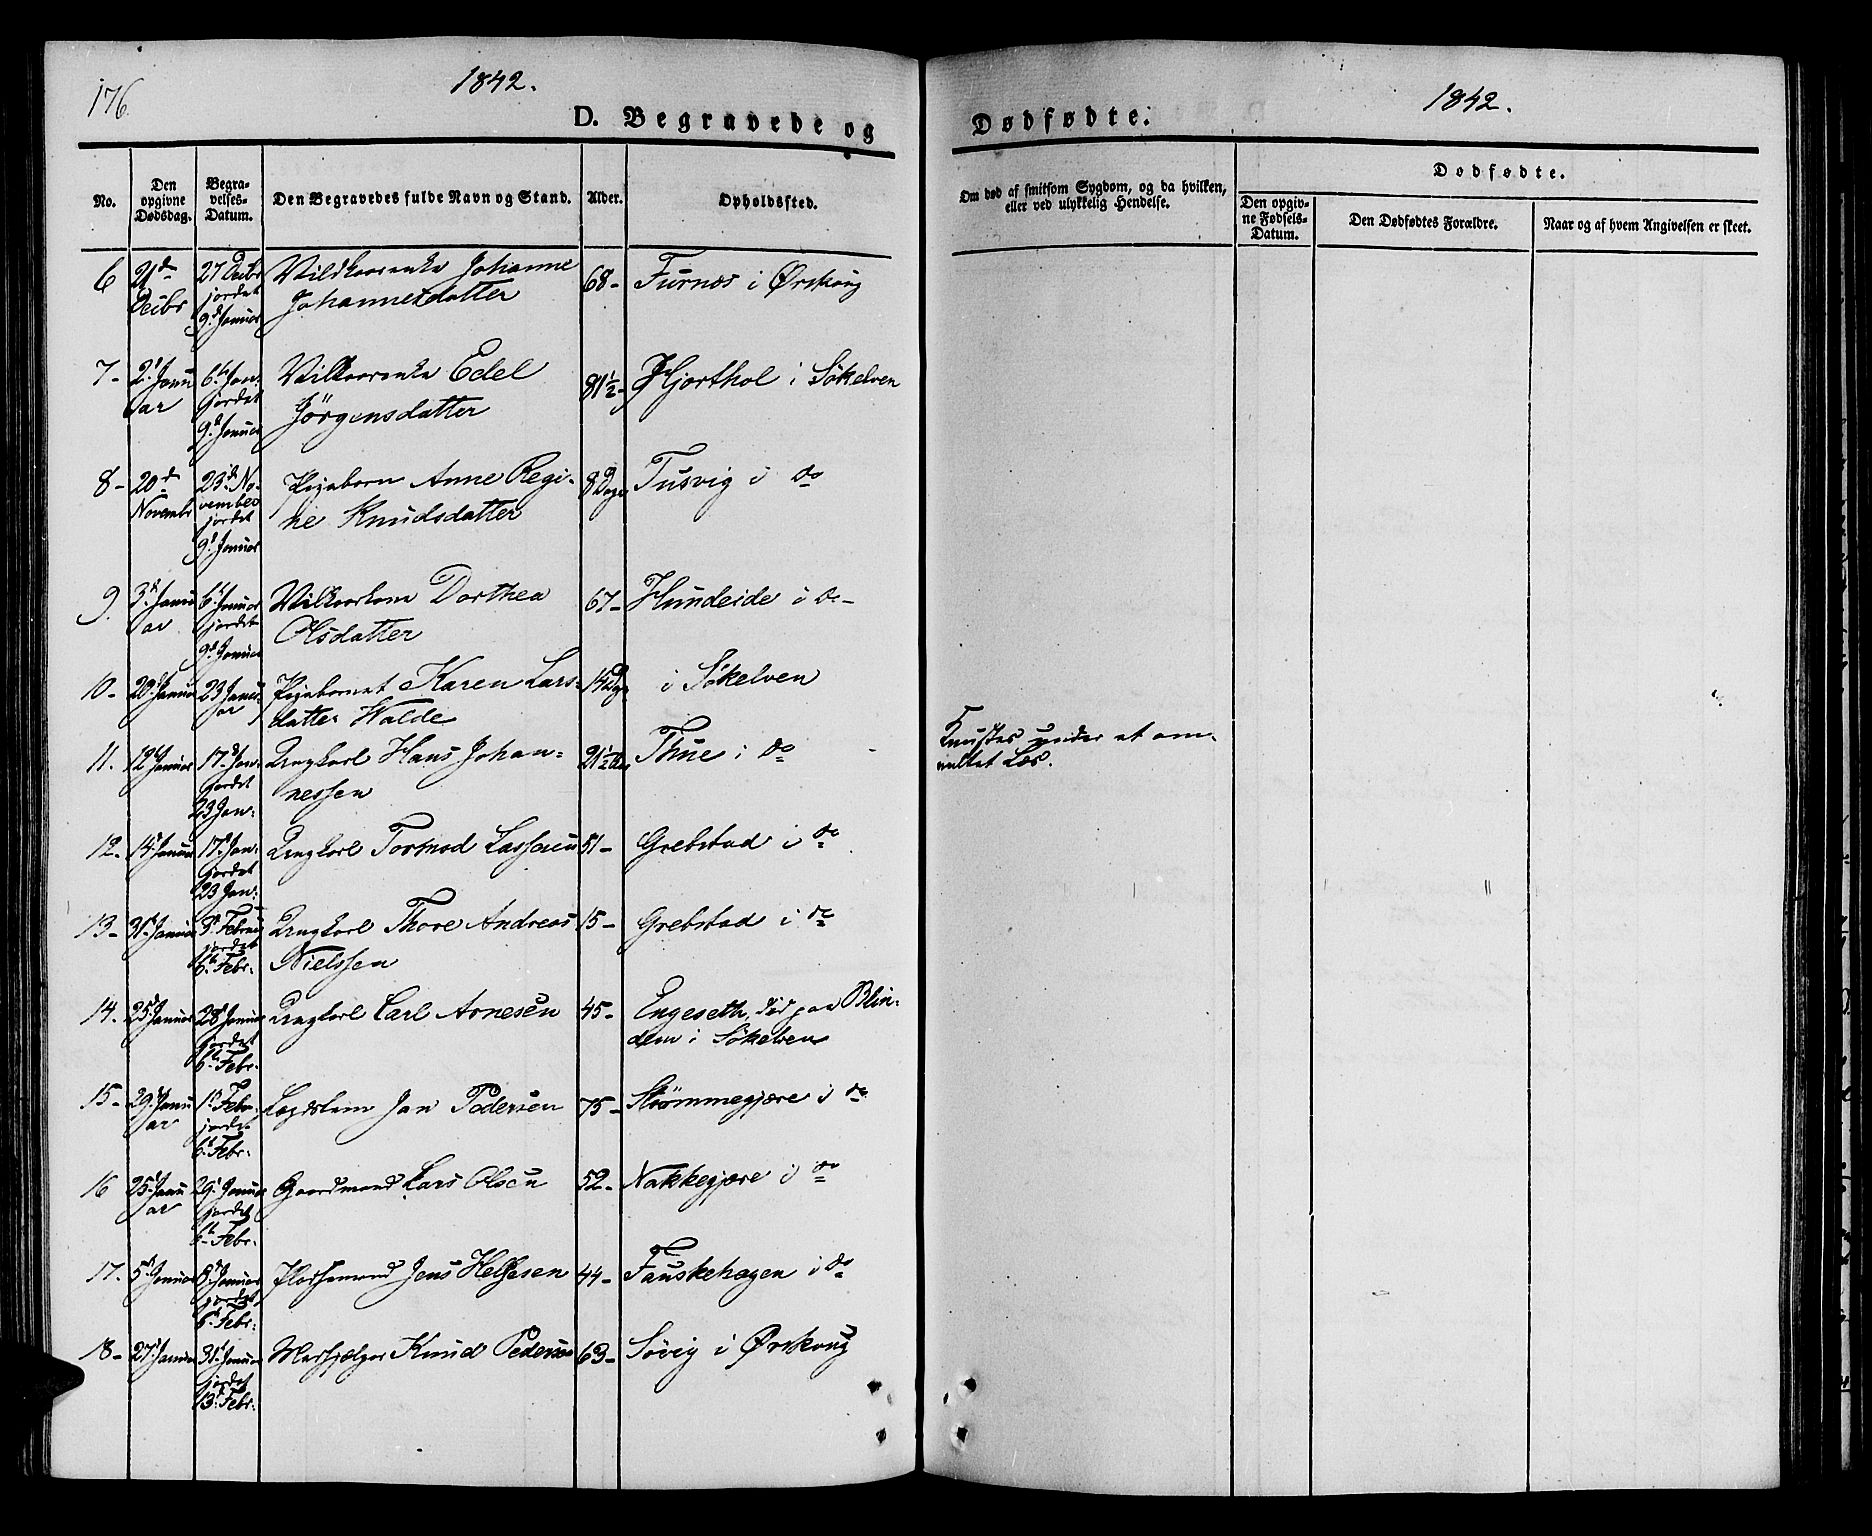 176.
1842.
1842.
D. Begravede og
Dødfødte.
No.
Den opgivne Dødsdag.
Begravelses-Datum.
Den Begravedes fulde Navn og Stand.
Alder.
Opholdssted.
Om død af smitsom Sygdom, og da hvilken, eller ved ulykkelig Hendelse.
Dødfødte.
Den opgivne Fødsels-Datum.
Den Dødfødtes Forældre.
Naar og af hvem Angivelsen er skeet.
6 21de Decbr 27 Decbr jordet 9d Januar Vilkaarenke Johanne Johannesdatter 68- Furnes i Ørskoug
7- 2d Januar 6te Jan: jordet 9d Januar Vilkaarenke Edel Jörgensdatter 81½- Hjorthol i Søkelven
8- 20de Novembr 23de November jordet 9d Januar Pigebarn Anne Regine Knudsdatter 8 Dage Tusvig i do
9. 3d Januar 6te Januar jordet 9d Januar Vilkaarkone Dorthea Olsdatter 67- Hundeide i do-
10- 20d Januar 23 Januar Pigebarnet Karen Larsdatter Walde 14 Dge i Søkelven
11. 12te Januar 17de Jan: jordet 23 Jan: Ungkarl Hans Johannessen 21½ Thue i do
Knustes under et omveltet Læs.
12- 14d Januar 17d Jan: jordet 23 Jan: Ungkarl Tormod Lassesen 51- Grebstad i do
13- 31d Januar 3d Februar jordet 6te Febr: Ungkarl Thore Andreas Nielssen 15- Grebstad i do
14- 25d Januar 28d Januar jordet 6te Febr: Ungkarl Carl Arnesen 45- Engeseth, død paa Blindem i Søkelven
15- 29d Januar 1st Febr. jordet 6te Febr: Lægdslem Jon Pedersen 75- Strømmegjære i do
16 25d Januar 29d Januar jordet 6te Febr: Gaardmand Lars Olsen 52- Nakkegjære i do
17. 5d Januar 8d Januar jordet 6te Febr: Pladsemand Jens Helgesen 44- Fauskehagen i do
18- 27d Januar 31d Januar jordet 13d Febr: Knud Pedersen 63- Søvig i Ørskoug